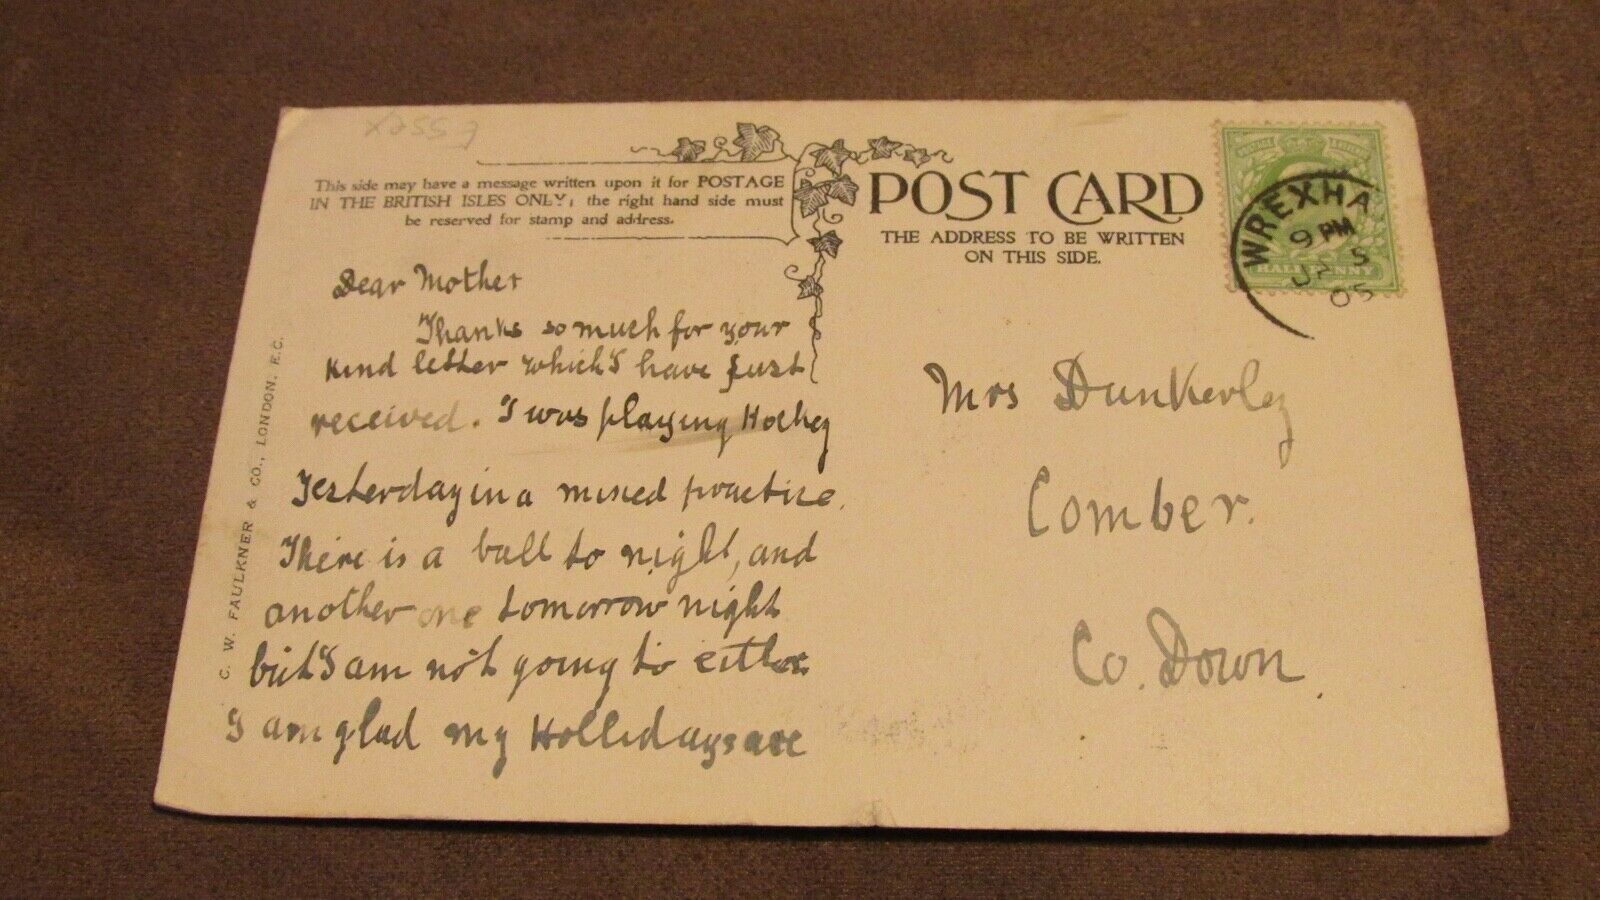 This side may have a message written upon it for POSTAGE
IN THE BRITISH ISLES ONLY; the right hand side must
be reserved for stamp and address.
POST CARD
THE ADDRESS TO BE WRITTEN
ON THIS SIDE.
POSTAGE
HALFPENNY
WREXHA
9 PM
JA 5
05
C. W. FAULKNER & CO., LONDON. E.C.
Dear Mother
Thanks so much for your
kind letter which I have just
received. I was playing Hockey
Yesterday in a mixed practice.
There is a ball to night, and
another one tomorrow night
but I am not going to either
I am glad my Hollidays are
Mrs Dunkerley
Comber.
Co. Down.